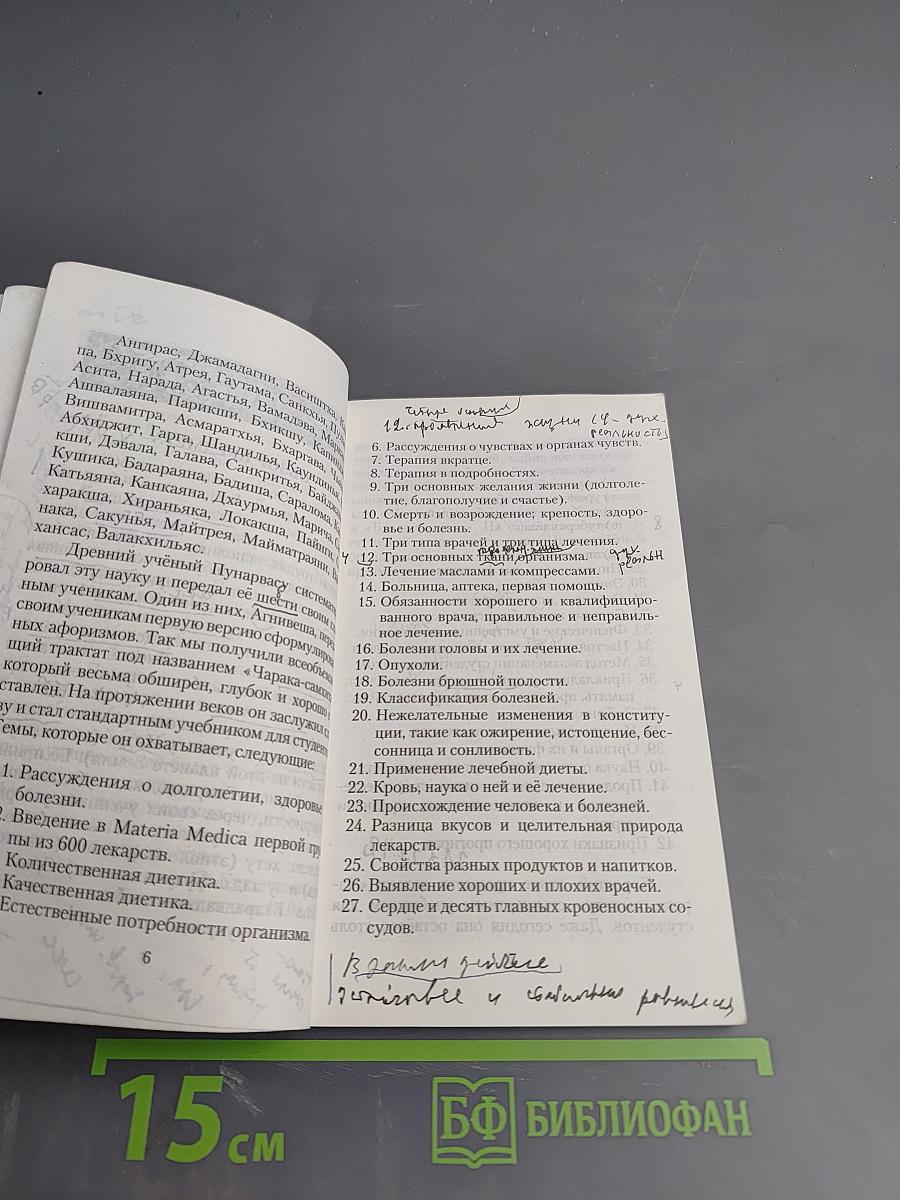 Ангирас, Джамадагни, Васиштха,
па, Бхригу, Атрея, Гаутама, Санкхья,
Асита, Нарада, Агастья, Вамадэва,
Ашвалаяна, Парикши, Бхикшу,
Вишвамитра, Асмаратхья, Бхаргава,
Абхиджит, Гарга, Шандилья, Каундинья,
кши, Дэвала, Галава, Санкритья,
Кушика, Бадараяна, Бадиша, Саралома,
Катьяяна, Канкаяна, Дхаурмья, Маричи,
харакша, Хираньяка, Локакша, Пайнги,
нака, Сакунья, Майтрея, Майматраяни,
хансас, Валакхильяс.
Древний учёный Пунарвасу система
ровал эту науку и передал её шести своим
ным ученикам. Один из них, Агнивеша, пере
своим ученикам первую версию сформулиров
ных афоризмов. Так мы получили всеобъем
щий трактат под названием «Чарака-самхи
который весьма обширен, глубок и хорошо
ставлен. На протяжении веков он заслужил
ву и стал стандартным учебником для студен
Темы, которые он охватывает, следующие:
1. Рассуждения о долголетии, здоровье
болезни.
2. Введение в Materia Medica первой гру
пы из 600 лекарств.
Количественная диетика.
Качественная диетика.
Естественные потребности организма.
6
жизни
6. Рассуждения о чувствах и органах чувств.
7. Терапия вкратце.
8. Терапия в подробностях.
9. Три основных желания жизни (долголе-
тие, благополучие и счастье).
10. Смерть и возрождение; крепость, здоро-
вье и болезнь.
11. Три типа врачей и три типа лечения.
12. Три основных ткани организма.
13. Лечение маслами и компрессами.
14. Больница, аптека, первая помощь.
15. Обязанности хорошего и квалифициро-
ванного врача, правильное и неправиль-
ное лечение.
16. Болезни головы и их лечение.
17. Опухоли.
18. Болезни брюшной полости.
19. Классификация болезней.
20. Нежелательные изменения в конститу-
ции, такие как ожирение, истощение, бес-
сонница и сонливость.
21. Применение лечебной диеты.
22. Кровь, наука о ней и её лечение.
23. Происхождение человека и болезней.
24. Разница вкусов и целительная природа
лекарств.
25. Свойства разных продуктов и напитков.
26. Выявление хороших и плохих врачей.
27. Сердце и десять главных кровеносных со-
судов.
15 см
БФ БИБЛИОФАН